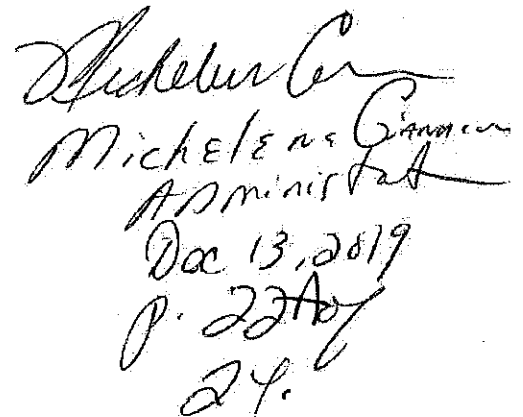 Michelene
Michelene
Administrat
Dec 13, 2019
p. 22 of
24.